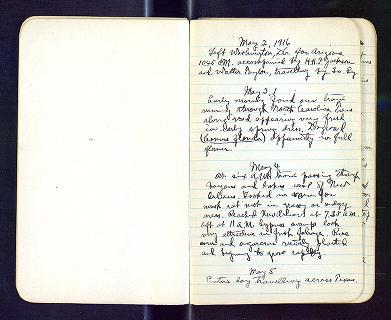 May 2, 1916
Left Washington, D.C. for Arizona
10:45 P.M. accompanied by H.H.T. Jackson
and Walter Taylor, travelling by So. Ry
May 3,
Early morning found our train
running through North Carolina. Pines
along road appearing very fresh
in early spring dress. Dogwood
(Cornus florida) apparently in full
flower.
May 4
At six A.M. train passing through
bayous and east of New
Orleans. Looked in vain for
musk rat nest in grassy or sedgy
areas. Reached New Orleans at 7.25 A.M.
left at 11 A.M. Cypress swamps look
very attractive in fresh foliage. Rice
corn and sugarcane recently planted
and begining to grow rapidly.
May 5
Entire day travelling across Texas.